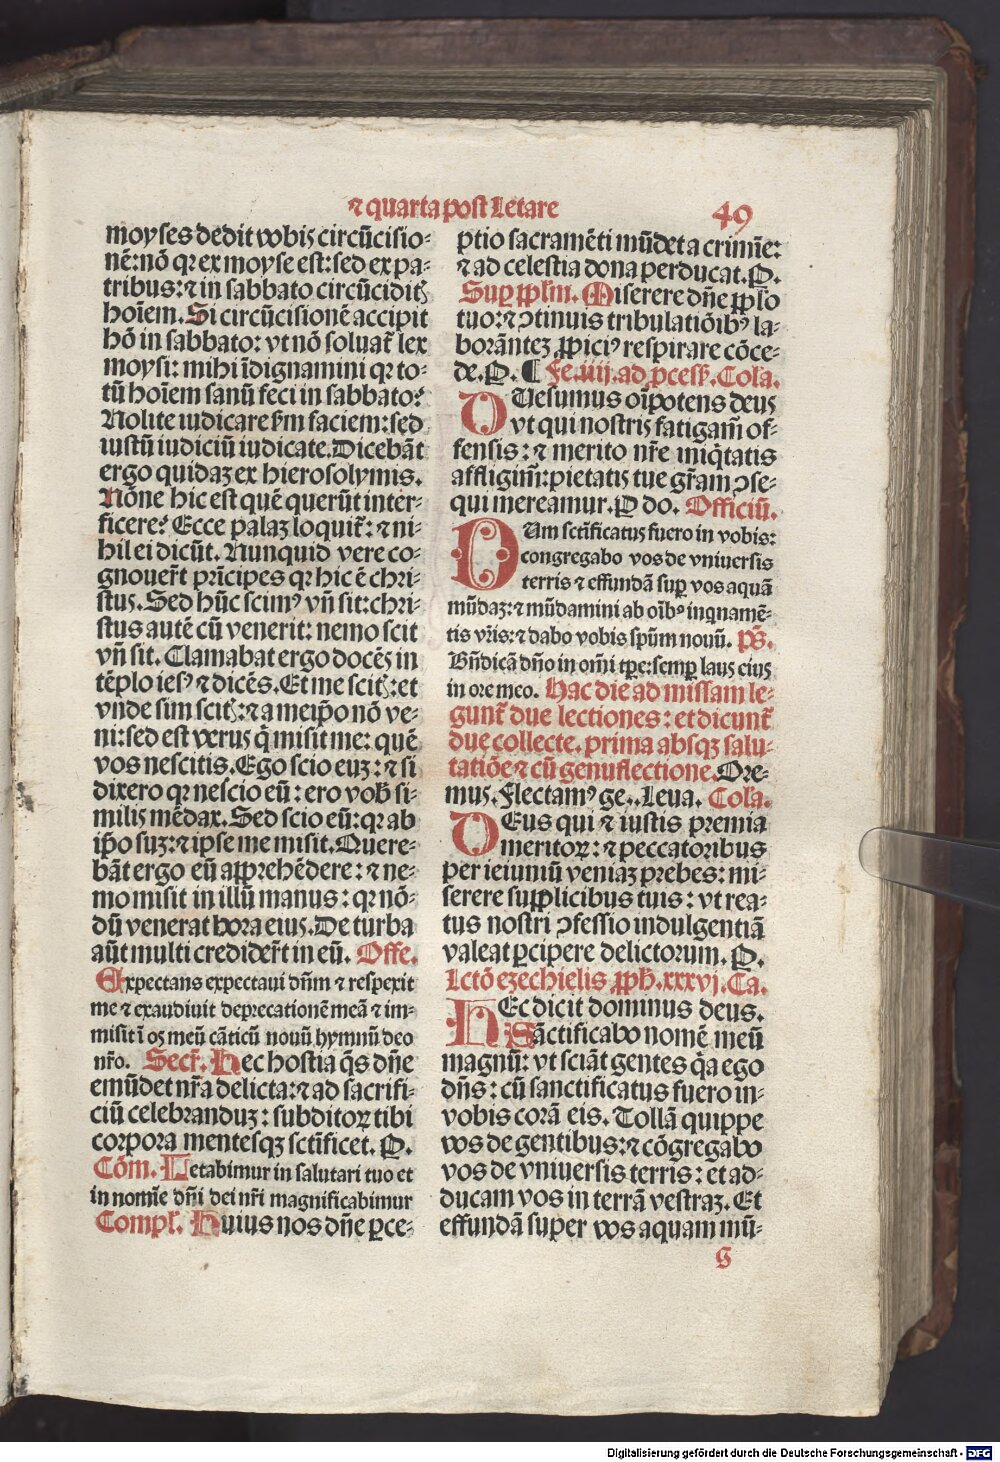 ⁊ quarta post Letare
49
moyses dedit vobis circūcisio-
nē: nō qꝛ ex moyse est: sed ex pa-
tribus: ⁊ in sabbato circūciditꝭ
hoīem. Si circūcisionē accipit
hō in sabbato: vt nō soluat̄ lex
moysi: mihi īdignamini qꝛ to-
tū hoīem sanū feci in sabbato?
Nolite iudicare ẜm faciem: sed
iustū iudiciū iudicate. Dicebāt
ergo quidaꝫ ex hierosolymis.
Nōne hic est quē querūt inter-
ficere? Ecce palaꝫ loquit̄: ⁊ ni-
hil ei dicūt. Nunquid vere co-
gnouer̄t prīcipes qꝛ hic ē chri-
stus. Sed hūc scimꝰ vn̄ sit: chri-
stus autē cū venerit: nemo scit
vn̄ sit. Clamabat ergo docēs in
tēplo iesꝰ ⁊ dicēs. Et me scitꝭ: et
vnde sim scitꝭ: ⁊ a meip̄o nō ve-
ni: sed est verus q̄ misit me: quē
vos nescitis. Ego scio euꝫ: ⁊ si
dixero qꝛ nescio eū: ero vob̄ si-
milis mēdax. Sed scio eū: qꝛ ab
ip̄o suꝫ: ⁊ ipse me misit. Quere-
bāt ergo eū apprehēdere: ⁊ ne-
mo misit in illū manus: qꝛ nō-
dū venerat hora eius. De turba
aūt multi credider̄t in eū. Offe.
Expectans expectaui dn̄m ⁊ respexit
me ⁊ exaudiuit deprecationē meā ⁊ im-
misit ī os meū cāticū nouū hymnū deo
nr̄o. Secr̄. Hec hostia q̄s dn̄e
emūdet nr̄a delicta: ⁊ ad sacrifi-
ciū celebranduꝫ: subditoꝝ tibi
corpora mentesqꝫ sct̄ificet. P.
Cōm. Letabimur in salutari tuo et
in nomīe dn̄i dei nr̄i magnificabimur
Compl̄. Huius nos dn̄e ꝑce-
ptio sacramēti mūdet a crimīe:
⁊ ad celestia dona perducat. P.
Suꝑ ppl̄m. Miserere dn̄e pplo
tuo: ⁊ ꝯtinuis tribulatiōibꝰ la-
borātez ꝓpiciꝰ respirare cōce-
de. P. ¶ Fe.iiij. ad ꝓcess̄. Col̄a.
Quesumus oīpotens deus
vt qui nostris fatigam̄ of-
fensis: ⁊ merito nr̄e iniq̄tatis
affligim̄: pietatis tue gr̄am ꝯse-
qui mereamur. P do. Officiū.
Dum sct̄ificatus fuero in vobis:
congregabo vos de vniuersis
terris ⁊ effundā suꝑ vos aquā
mūdaꝫ: ⁊ mūdamini ab oībꝰ inqnamē-
tis vr̄is: ⁊ dabo vobis spūm nouū. ps̄.
Bn̄dicā dn̄o in om̄i tpꝛe: semꝑ laus eius
in ore meo. Hac die ad missam le-
gunt̄ due lectiones: et dicunt̄
due collecte. prima absqꝫ salu-
tatiōe ⁊ cū genuflectione. Ore-
mus. Flectamꝰ ge.. Leua. Col̄a.
Deus qui ⁊ iustis premia
meritoꝝ: ⁊ peccatoribus
per ieiuniū veniaꝫ prebes: mi-
serere supplicibus tuis: vt rea-
tus nostri ꝯfessio indulgentiā
valeat ꝑcipere delictorum. P.
Lctō ezechielis ꝓph̄. xxxvj. Ca.
Hec dicit dominus deus.
Sāctificabo nomē meū
magnū: vt sciāt gentes q̄a ego
dn̄s: cū sanctificatus fuero in-
vobis corā eis. Tollā quippe
vos de gentibus: ⁊ cōgregabo
vos de vniuersis terris: et ad-
ducam vos in terrā vestraꝫ. Et
effundā super vos aquam mū-
G
Digitalisierung gefördert durch die Deutsche Forschungsgemeinschaft - DFG